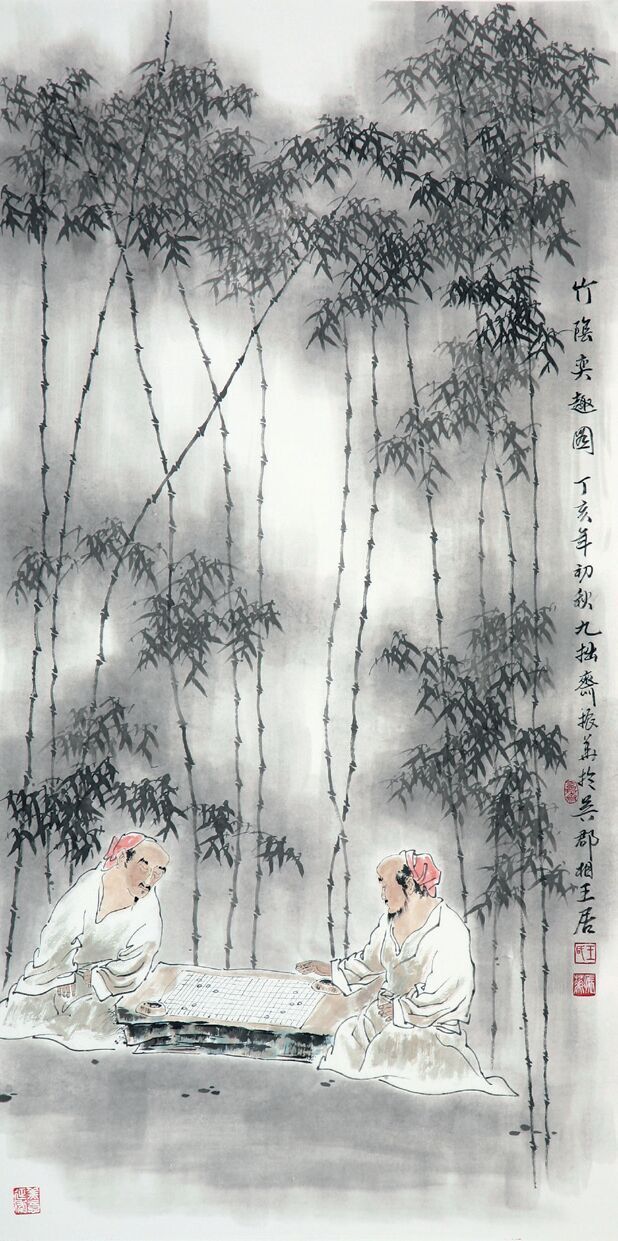 竹陰奕趣圖 丁亥年初秋九拙齋振華於吳郡相王居